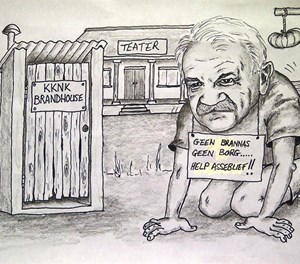 KKNK
BRANDHOUSE
TEATER
GEEN BRANNAS
GEEN BORG.....
HELP ASSEBLIEF!!